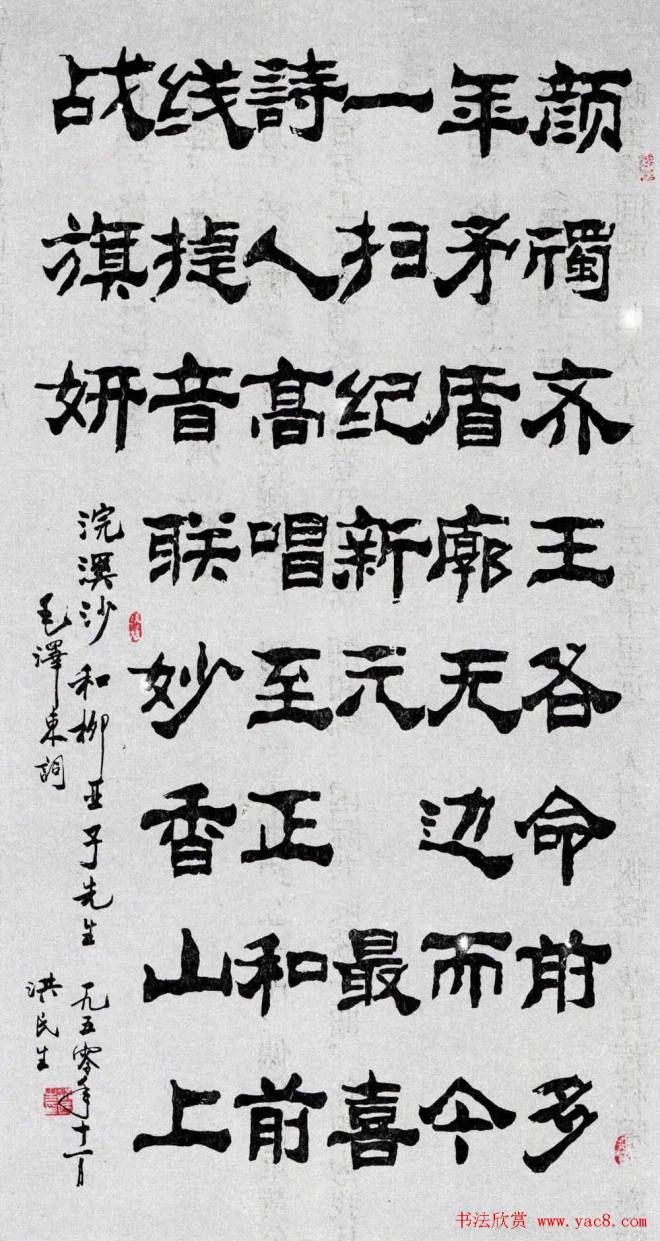 颜斶齐王各命前多
年矛盾廓无边而今
一扫纪新元 最喜
詩人高唱至正和前
线捷音联妙香山上
战旗妍
浣溪沙 和柳亚子先生 一九五零年十一月
毛澤東詞
洪民生
书法欣赏 www.yac8.com